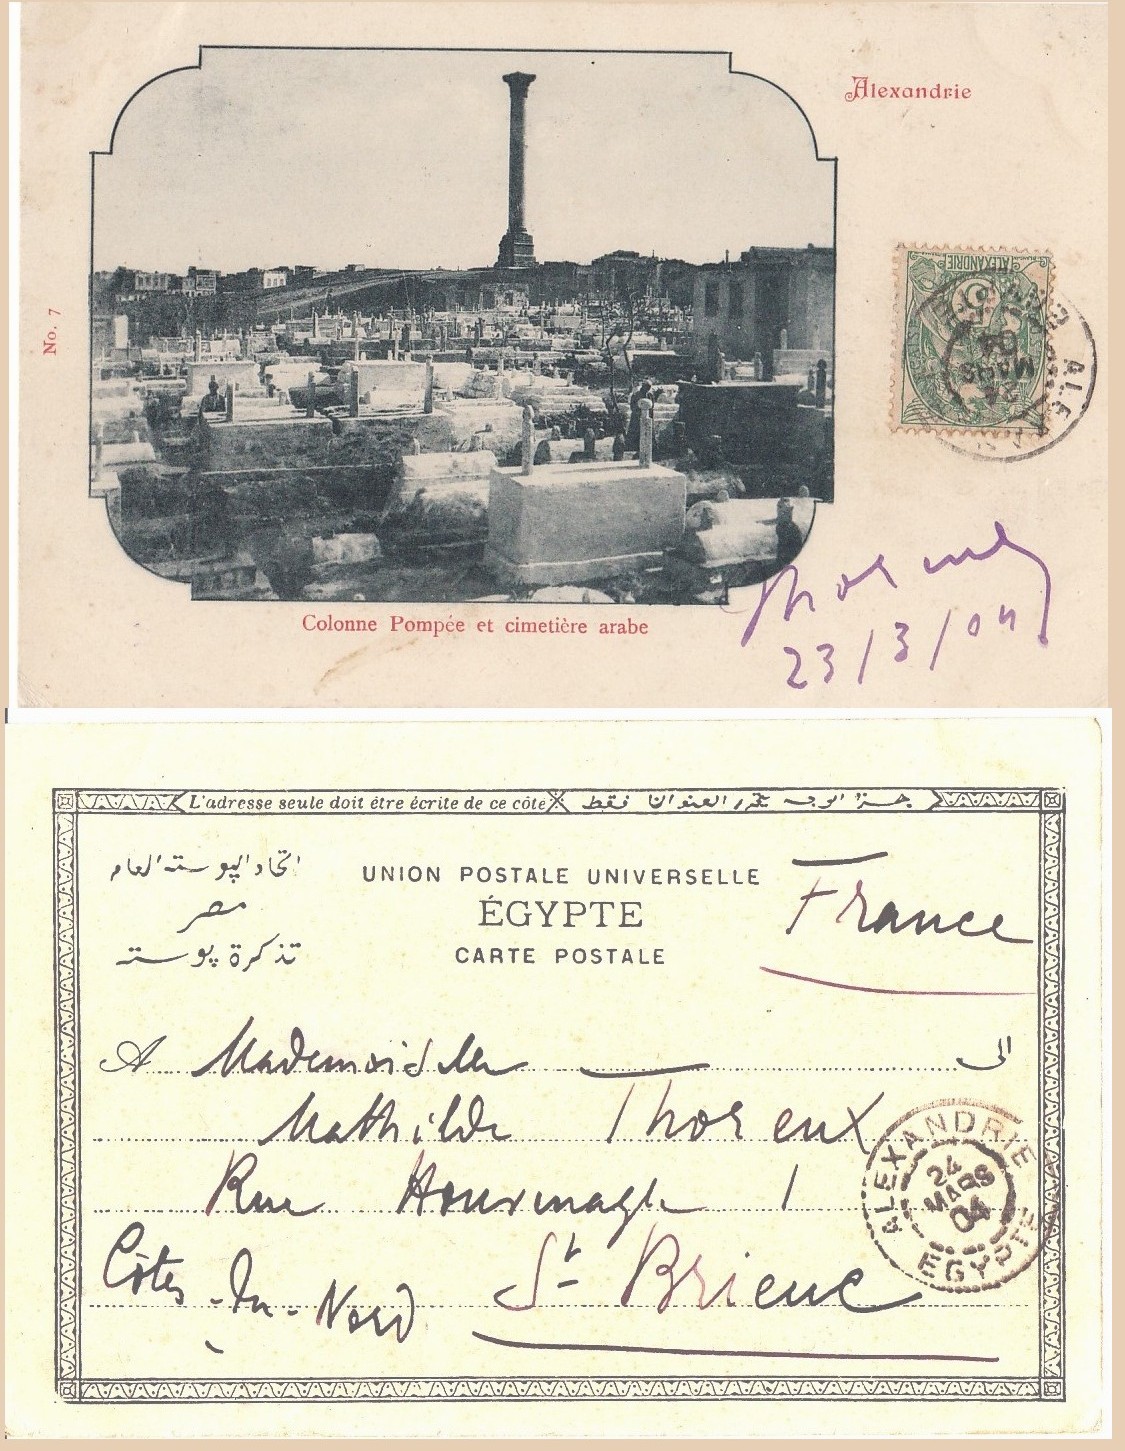 Alexandrie
No. 7
ALEXANDRIE
5
24
MARS
04
Colonne Pompée et cimetière arabe
23/3/04
L'adresse seule doit être écrite de ce côté
فقط العنوان
اتحاد البوسته العام
مصر
تذكرة بوسته
UNION POSTALE UNIVERSELLE
ÉGYPTE
CARTE POSTALE
France
A Mademoiselle الى
Mathilde Thoreux
Rue 1
Côtes-du-Nord St Brieuc
ALEXANDRIE
24
MARS
04
EGYPTE